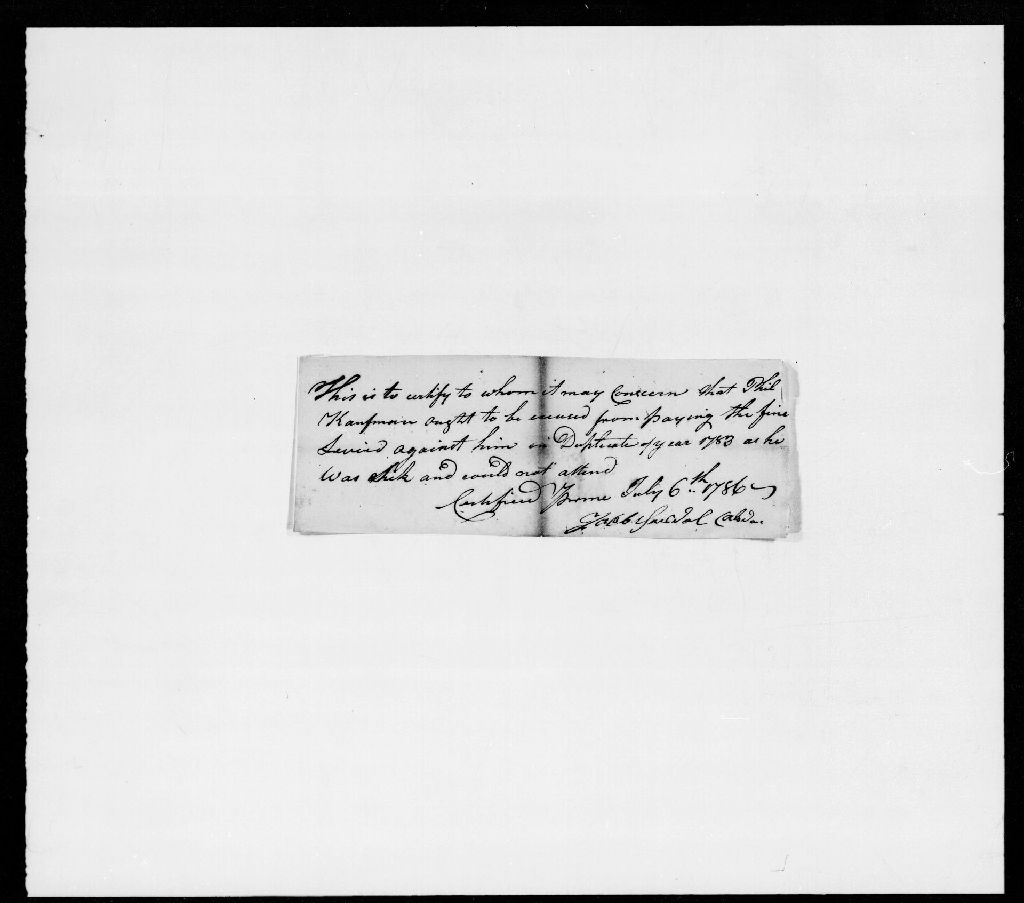 This is to certify to whom it may Concern that Phil
Kaufman ought to be excused from paying the fine
Levied against him in Duplicate of year 1783 as he
Was Sick and could not attend
Certified July 6th 1786
Jacob